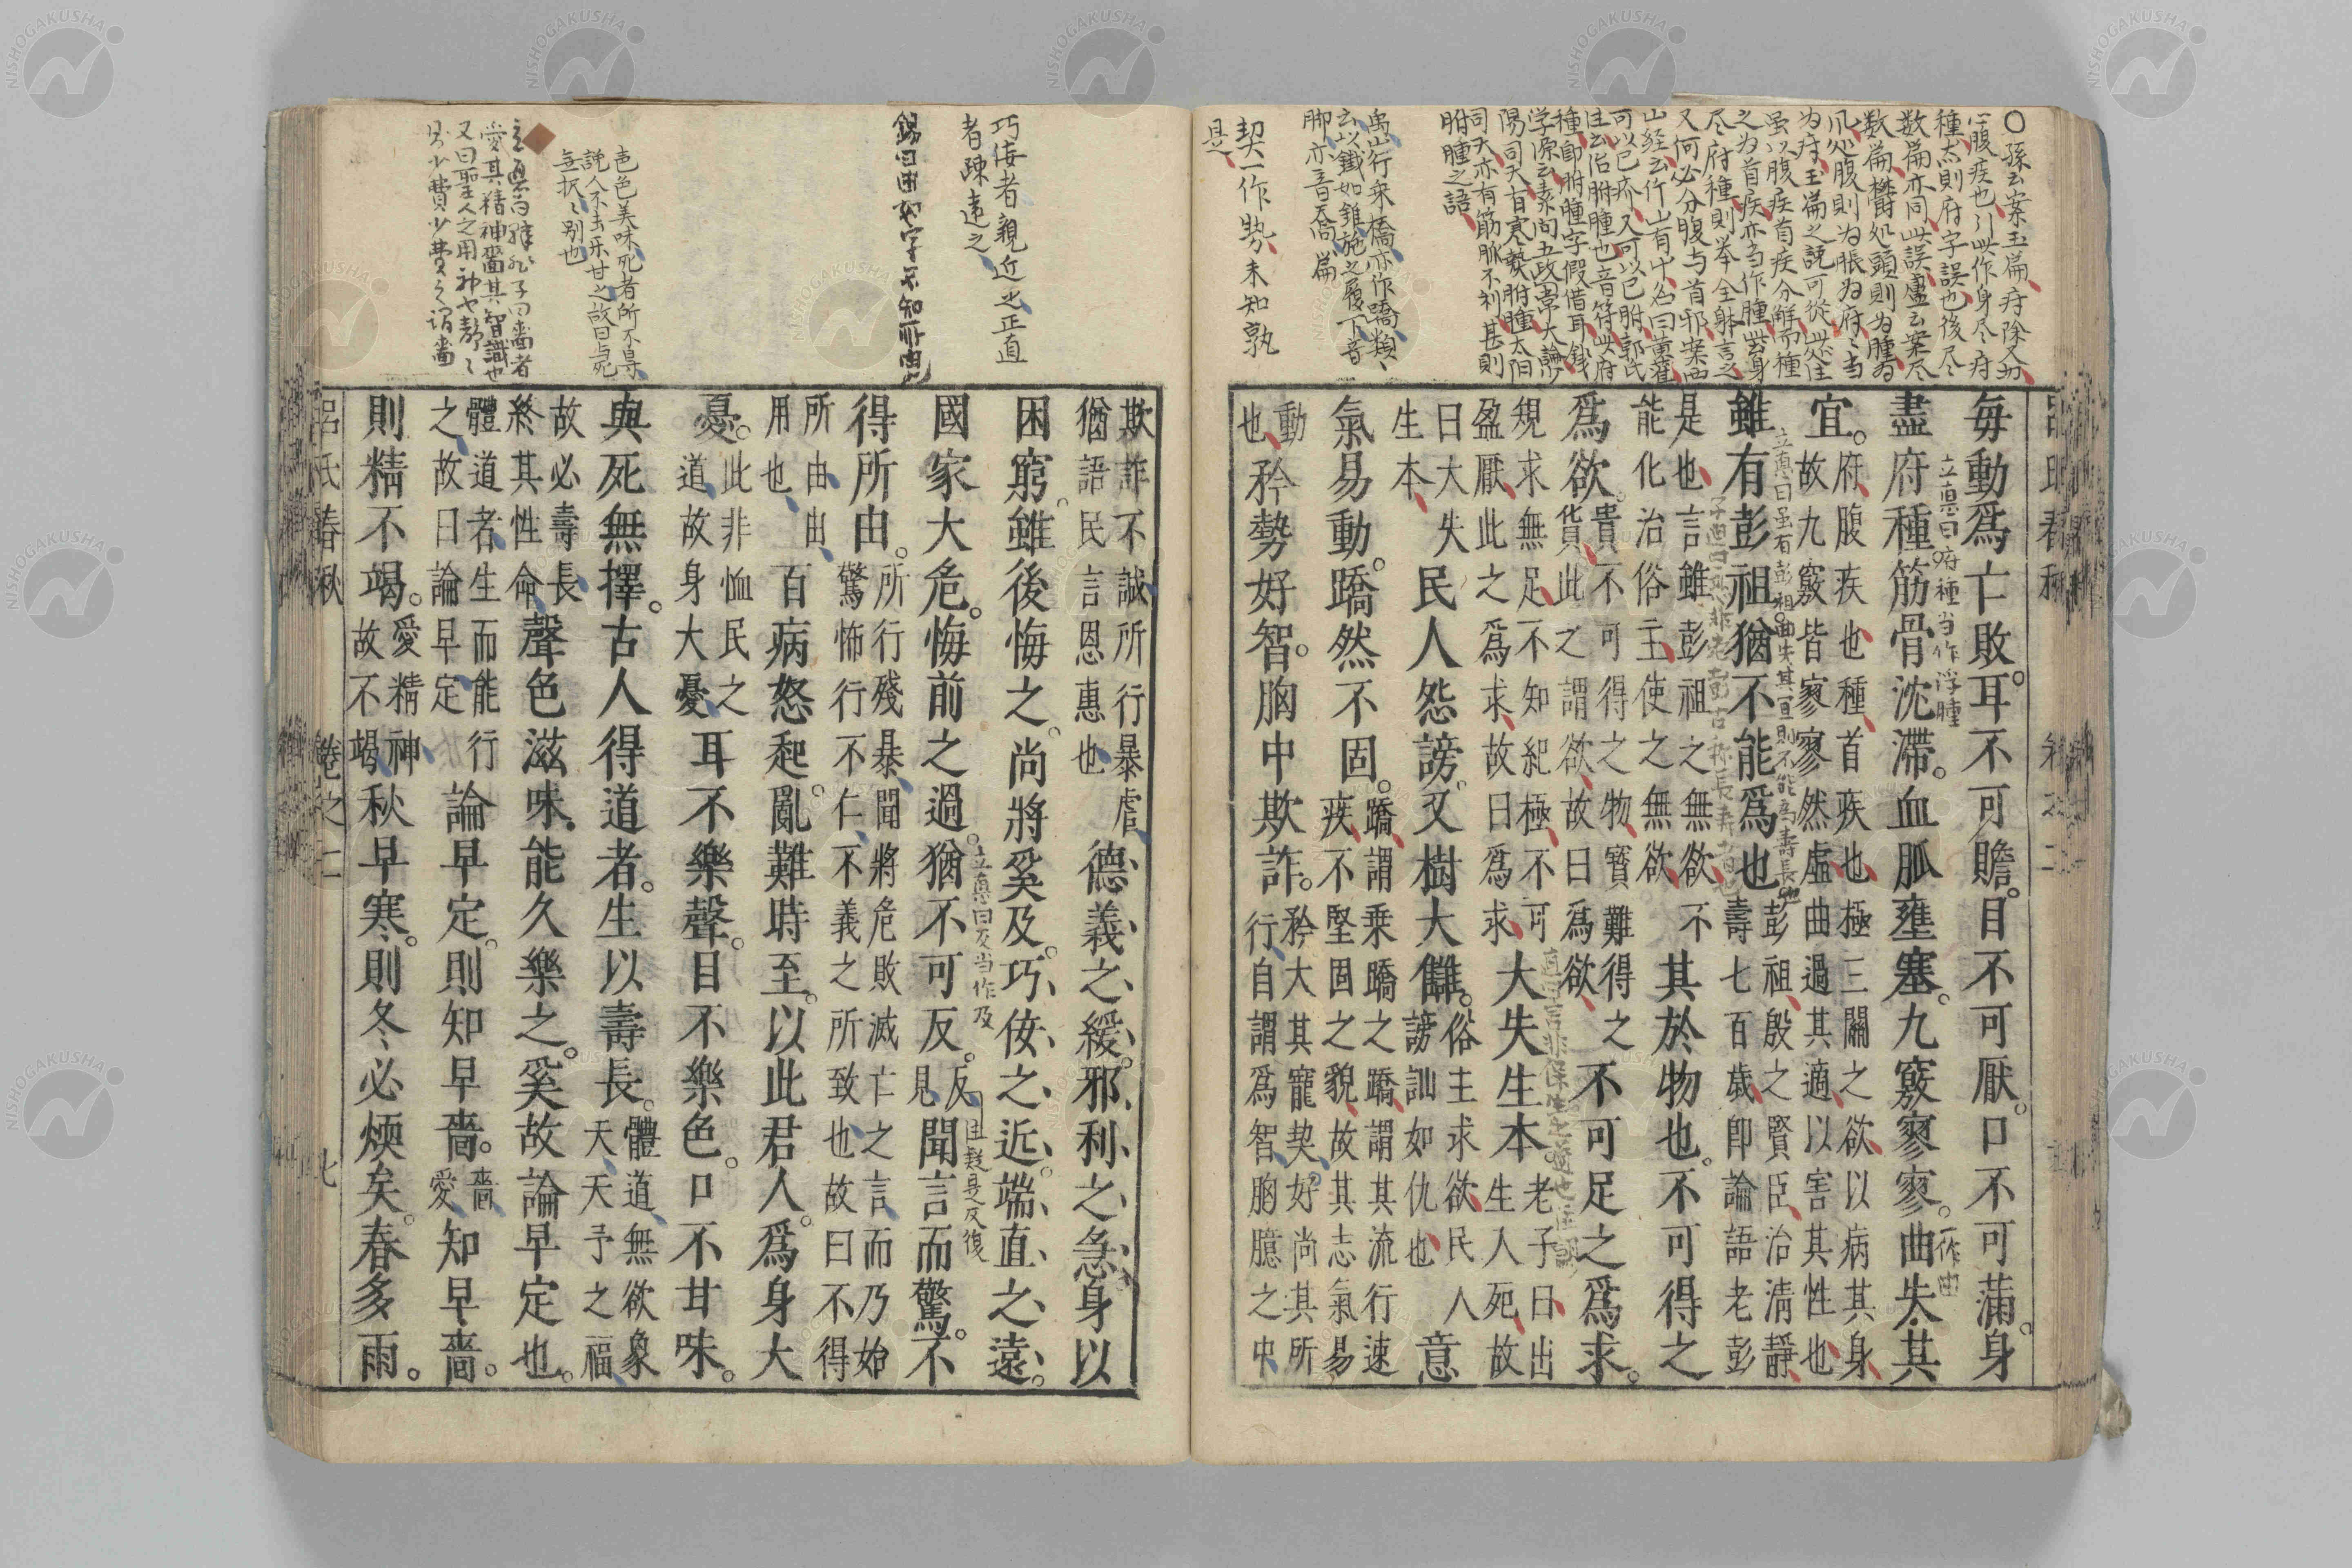 〇孫云案玉篇疛除又切
心腹疾也引此作身尽疛
種太則府字誤也後尽
数篇亦同此誤盧云案尽
数篇欝処頭則為腫為
風処腹則為脹為府当
為疛玉篇之説可從此注
虽以腹疾首疾分解而種
之為首疾亦当作腫此身
尽府種則举全躰言之
又何必分腹与首邪案西
山経云竹山有艸名曰黄雚
可以已疥又可以已胕郭氏
注云治胕腫也音符此府
種即胕腫字假借耳銭
学源云素问五政常大論少
陽司天有寒熱胕腫太阳
司天亦有筋脈不利甚則
胕腫之語
禹山行乘橋亦作蹻類
云以鐵如錐施之履下音
脚亦音喬篇
契一作勢未知孰
是
每動爲亡敗。耳不可贍。目不可厭。口不可滿。身
立真曰府種当作浮腫
盡府種筋骨沈滯。血脈壅塞。九竅寥寥。曲失其
一作由
宜。
府腹疾也種首疾也極三關之欲以病其身
故九竅皆寥寥然虛曲過其適以害其性也
立真曰虽有彭祖曲失其宜則不能為壽長也
雖有彭祖猶不能爲也
彭祖殷之賢臣治清靜
壽七百歲卽論語老彭
是也言雖彭祖之無欲不
能化治俗主使之無欲
其於物也。不可得之
爲欲。
貴不可得之物寶難得之
貨此之謂欲故曰爲欲
不可足之爲求。
規求無足不知紀極不可
盈厭此之爲求故曰爲求
大失生本
老子曰出
生人死故
曰大失
生本
民人怨謗。又樹大讎。
俗主求欲民人
謗訕如仇也
意
氣易動。蹻然不固。
蹻謂乗蹻之蹻謂其流行速
疾不堅固之貌故其志氣易
動
也
矜勢好智。胸中欺詐。
矜大其寵契好尚其所
行自謂爲智胸臆之中
巧佞者親近也正直
者疎遠之
錫曰由
字不知所由
色色美味死者所不旻
説人不去乐甘之故曰与死
無択別也
愛其精神嗇其智識也
又曰聖人之用神
少費少費之謂嗇
欺詐不誠所行暴虐
猶語民言恩惠也
德義之緩。邪利之急。身以
困窮。雖後悔之。尚將奚及。巧佞之近。端直之遠。
立真曰反当作及
國家大危。悔前之過。猶不可反。
反
見
聞言而驚。不
得所由。
所行殘暴聞將危敗滅亡之言而乃始
驚怖行不仁不義之所致也故曰不得
所由由
用也
百病怒起。亂難時至。以此君人。爲身大
憂。
此非恤民之
道故身大憂
耳不樂聲。目不樂色。口不甘味。
與死無擇。古人得道者。生以壽長。
體道無欲象
天天予之福
故必壽長
終其性命
聲色滋味。能久樂之。奚故論早定也。
體道者生而能行
之故曰論早定
論早定。則知早嗇。
嗇
愛
知早嗇。
則精不竭。
愛精神
故不竭
秋早寒。則冬必煗矣。春多雨。
呂氏春秋 卷之二 七